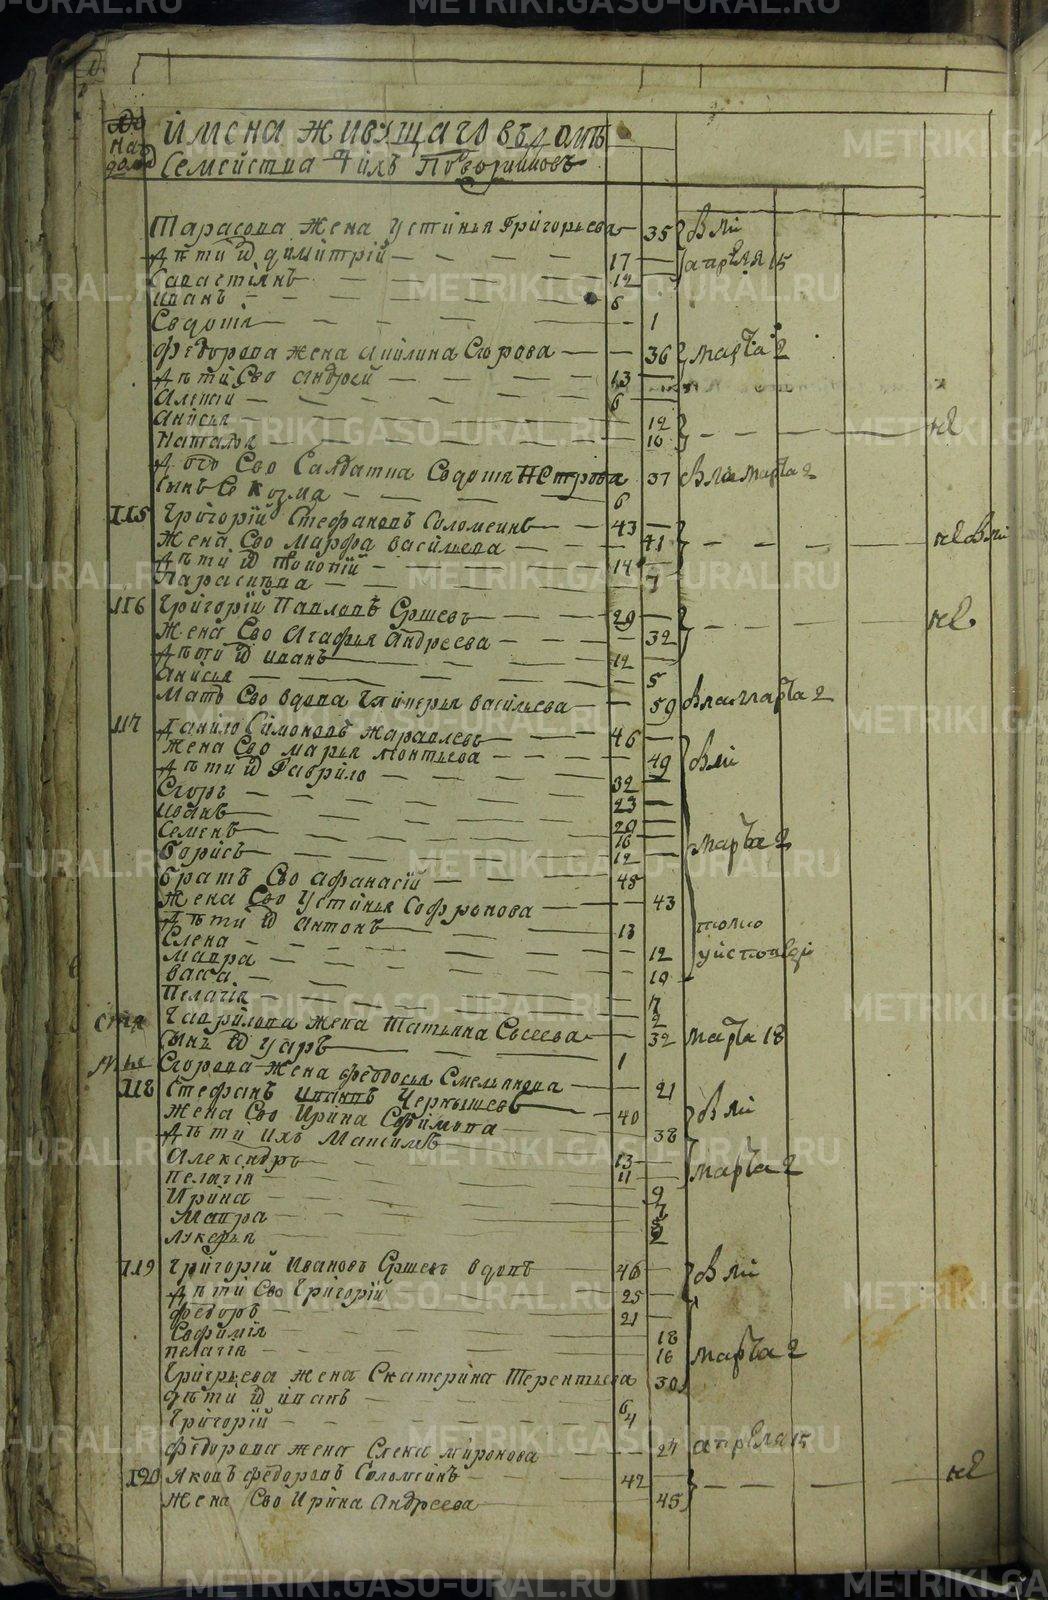 имена живущаго въ домъ
Семейства ихъ
на
дома
Тарасова жена Устинья Григорьева — 35 Вли
дѣти димитрій — 17 апреля 15
Савастіянъ 12
иванъ — 6
Евдотія — 1
Федорова жена Егорова — 36 марта 2
дѣти Ево андрей — 13
Алексій — 6
Анисья 12
Наталья 10 — нѣ
Ево Салдатка Евдотія Петрова 37 Вли марта 2
сынъ козма — 6
115 Григорій Стефановъ Соломеинъ — 43
Жена Ево Марфа васильева — 41 нѣ Вли
дѣти — 14
Параскева — 7
116 Григорій Павловъ Ершевъ 29 нѣ
Жена Ево Агафья Андреева — 32
дѣти иванъ 12
Анисья — 5
Мать Ево вдова васильева — 59 Вли марта 2
117 Данило Симоновъ Жаравлевъ 46
Жена Ево марья леонтьева — 49 Вли
дѣти Гаврило — 32
Егоръ — 23
иванъ 20
Семенъ 16 марта 2
Борисъ 12
братъ Ево афанасій — 45
Жена Ево Устинья Софронова — 43
дѣти антонъ 13 толко
Елена — 12 уисповеди
мавра — 10
васса —
Пелагія
Гаврилова жена Татьяна Евсеева 32 марта 18
сынъ уаръ 1
Егорова жена феодосья Емельянова 21
118 Стефанъ ивановъ Чернышевъ 40 Вли
Жена Ево Ирина Ефимова — 38
дѣти ихъ Максимъ 13
Александръ 11 марта 2
пелагія 9
Ирина — 7
Мавра — 5
лукерья 2
119 Григорій Ивановъ Ершевъ вдовъ 46 Вли
дѣти Ево Григорій 25
федоръ 21
Евфимія 18
пелагія 16 марта 2
Григрьева жена Екатерина Терентьева 30
дѣти иванъ — 6
Григорій — 4
федорова жена Елена миронова 24 апреля 15
120 Яковъ федоровъ Соломеинъ 42 нѣ
Жена Ево Ирина Андреева 45
METRIKI.GASO-URAL.RU